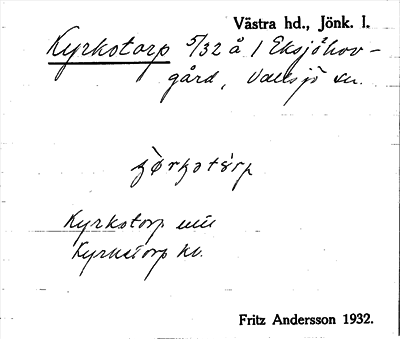 Västra hd., Jönk. l.
Kyrkotorp 5/32 å 1 Eksjöhov-
gård, Vallsjö sn.
Kyrkotorp
Kyrkotorp kv.
Fritz Andersson 1932.